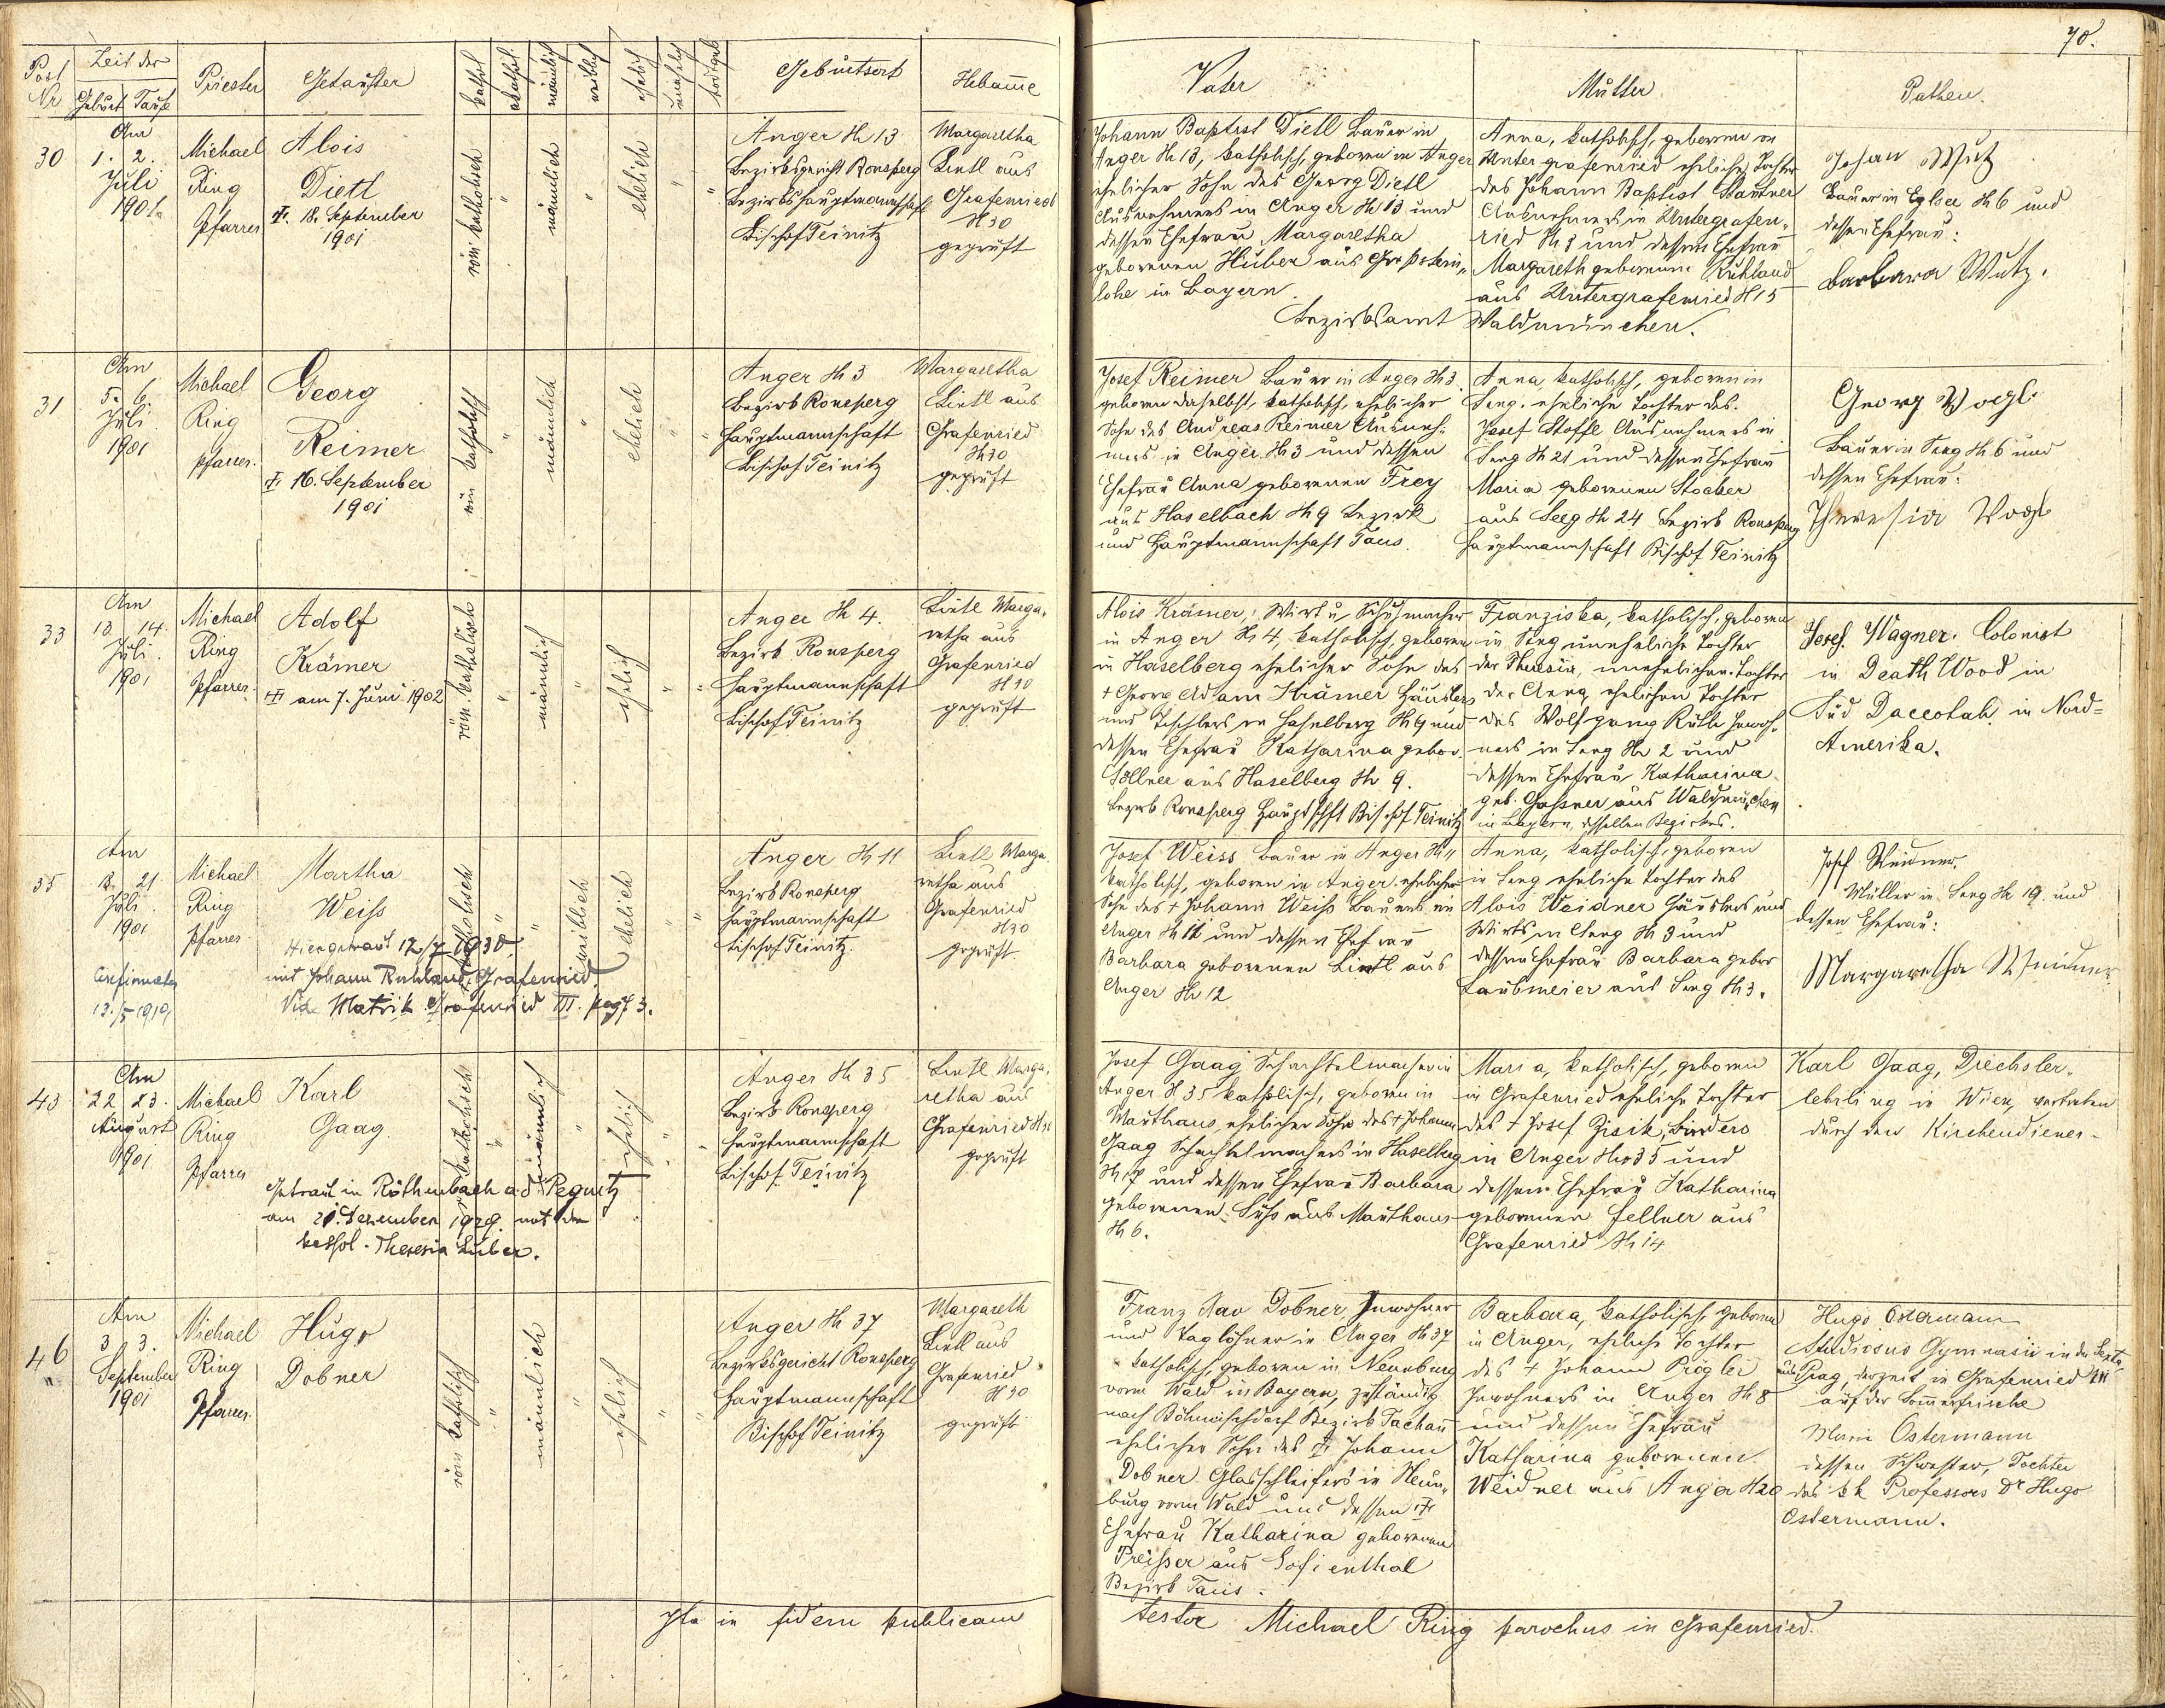 70.
Post Nr
Zeit der
Geburt Taufe
Priester
Getaufter
kathol
akathol.
männlich
weiblich
ehelich
unehelich
todtgeb
Geburtsort
Hebamme
Vater
Mutter
Pathen.
30
Am
1. 2.
Juli
1901.
Michael
Ring
Pfarrer
Alois
Dietl
†. 18. September
1901
röm katholisch
"
männlich
"
ehelich
"
"
Anger H 13
Bezirksgericht Ronsperg
Bezirkshauptmannschaft
Bischof Teinitz
Margaretha
Lintl aus
Grafenried
H 30
geprüft
Johann Baptist Dietl Bauer in
Anger H 13, katholisch, geboren in Anger
ehelicher Sohn des Georg Dietl
Ausnehmers in Anger H 13 und
dessen Ehefrau Margaretha
geborenen Huber aus Großstein-
lohe in Bayern.
Bezirksamt Waldmünchen.
Anna, katholisch, geboren in
Untergrafenried eheliche Tochter
des Johann Baptist
Ausnehmers in Untergrafen-
ried H 3 und dessen Ehefrau
Margareth geborenen Ruhland
aus Untergrafenried H 15
Johan Wutz
Bauer in Eglsee H 6 und
dessen Ehefrau:
Barbara Wutz.
31
Am
5. 6.
Juli
1901
Michael
Ring
Pfarrer.
Georg
Reimer
† 16. September
1901
röm katholisch
"
männlich
"
ehelich
"
"
Anger H 3
Bezirk Ronsperg
Hauptmannschaft
Bischof Teinitz
Margaretha
Lintl aus
Grafenried
H 30
geprüft
Josef Reimer Bauer in Anger H 3
geboren daselbst, katholisch, ehelicher
Sohn des Andreas Reimer Ausneh-
mers in Anger H 3 und dessen
Ehefrau Anna geborenen Frey
aus Haselbach H 9 Bezirk
und Hauptmannschaft Taus.
Anna, katholisch, geboren in
Seeg, eheliche Tochter des
Josef Stoffl Ausnehmers in
Seeg H 21 und dessen Ehefrau
Maria geborenen Stocker
aus Seeg H 24 Bezirk Ronsperg
Hauptmannschaft Bischof Teinitz
Georg Vogl
Bauer in Seeg H 6 und
dessen Ehefrau:
Theresia Vogl
33
Am
13. 14.
Juli.
1901
Michael
Ring
Pfarrer.
Adolf
Krämer
† am 7. Juni 1902
röm. katholisch
"
männlich
"
ehelich
"
"
Anger H 4.
Bezirk Ronsperg
Hauptmannschaft
Bischof Teinitz
Lintl Marga-
retha aus
Grafenried
H 30
geprüft
Alois Krämer, Wirt u. Schuhmacher
in Anger H 4, katholisch, geboren
in Haselberg ehelicher Sohn des
† Georg Adam Krämer Häuslers
und Tischlers in Haselberg H 9 und
dessen Ehefrau Katharina gebor.
Söllner aus Haselberg H 9.
Bezirk Ronsperg Hauptschft Bischof Teinitz
Franziska, katholisch, geboren
in Seeg uneheliche Tochter
der Theresia, unehelichen Tochter
der Anna ehelichen Tochter
des Wolfgang Inwoh-
ners in Seeg H 2 und
dessen Ehefrau Katharina
geb. Gaßner aus Waldmünchen
in Bayern, desselben Bezirkes.
Josef Wagner. Colonist
in Death Wood in
Süd Daccotah in Nord-
Amerika.
35
Am
18. 21
Juli.
1901
Michael
Ring
Pfarrer
Martha
Weiss
Hier getraut 12/7 1930
mit Johann Ruhland, Grafenried.
Vide Matrik Grafenried VII. pag 73.
Confirmata
13./5 1910
katholisch
"
"
weiblich
ehelich
"
"
Anger H 11
Bezirk Ronsperg
Hauptmannschaft
Bischof Teinitz.
Lintl Marga-
retha aus
Grafenried
H 30
geprüft
Josef Weiss Bauer in Anger H 11
katholisch, geboren in Anger ehelicher
Sohn des † Johann Weiß Bauers in
Anger H 11 und dessen Ehefrau
Barbara geborenen Lintl aus
Anger H 12
Anna, katholisch, geboren
in Seeg eheliche Tochter des
Alois Weidner Häuslers und
Wirts in Seeg H 3 und
dessen Ehefrau Barbara gebor
Laubmeier aus Seeg H 3.
Josef Weidner
Müller in Seeg H 19 und
dessen Ehefrau:
Margaretha Weidner
43
Am
22 23.
August
1901
Michael
Ring
Pfarrer
Karl
Gaag.
Getraut in Röthenbach a. d. Pegnitz
am 21. Dezember 1929. mit der
kathol. Theresia Huber.
katholisch
"
männlich
"
ehelich
"
"
Anger H 35
Bezirk Ronsperg
Hauptmannschaft
Bischof Teinitz
Lintl Marga-
retha aus
Grafenried H 30
geprüft
Josef Gaag Schachtelmacher in
Anger H 35 katholisch, geboren in
Mauthaus, ehelicher Sohn des † Johann
Gaag Schachtelmachers in Haselberg
H 17 und dessen Ehefrau Barbara
geborenen Süß aus Mauthaus
H 6.
Maria, katholisch, geboren
in Grafenried eheliche Tochter
des † Josef Zisik, Binders
in Anger H 35 und
dessen Ehefrau Katharina
geborenen Fellner aus
Grafenried H 14
Karl Gaag, Drechsler-
lehrling in Wien, vertreten
durch den Kirchendiener-
46
"
Am
3 3.
September
1901
Michael
Ring
Pfarrer.
Hugo
Dobner
röm katholisch
"
männlich
"
ehelich
"
"
Anger H 37
Bezirksgericht Ronsperg
Hauptmannschaft
Bischof Teinitz
Margareth
Lintl aus
Grafenried
H 30
geprüft
Franz Xav Dobner Inwohner
und Taglöhner in Anger H 37
katholisch, geboren in Neunburg
vorm Wald in Bayern, zuständig
nach Böhmischdorf Bezirk Tachau
ehelicher Sohn des † Johann
Dobner Glasschleifers in Neun-
burg vorm Wald und dessen †
Ehefrau Katharina geborenen
Preißer aus Sofienthal
Bezirk Taus.
Barbara, katholisch, geboren
in Anger, eheliche Tochter
des † Johann Prögler
Inwohners in Anger H 8
und dessen Ehefrau
Katharina geborenen
Weidner aus Anger H 20
Hugo Ostermann
Studiosus Gymnasii in der Sexta
aus Prag, derzeit in Grafenried
auf der Sommerfrische
Marie Ostermann
dessen Schwester, Tochter
des k k Professors Dr Hugo
Ostermann.
Ita in fidem publicam
testor Michael Ring parochus in Grafenried.